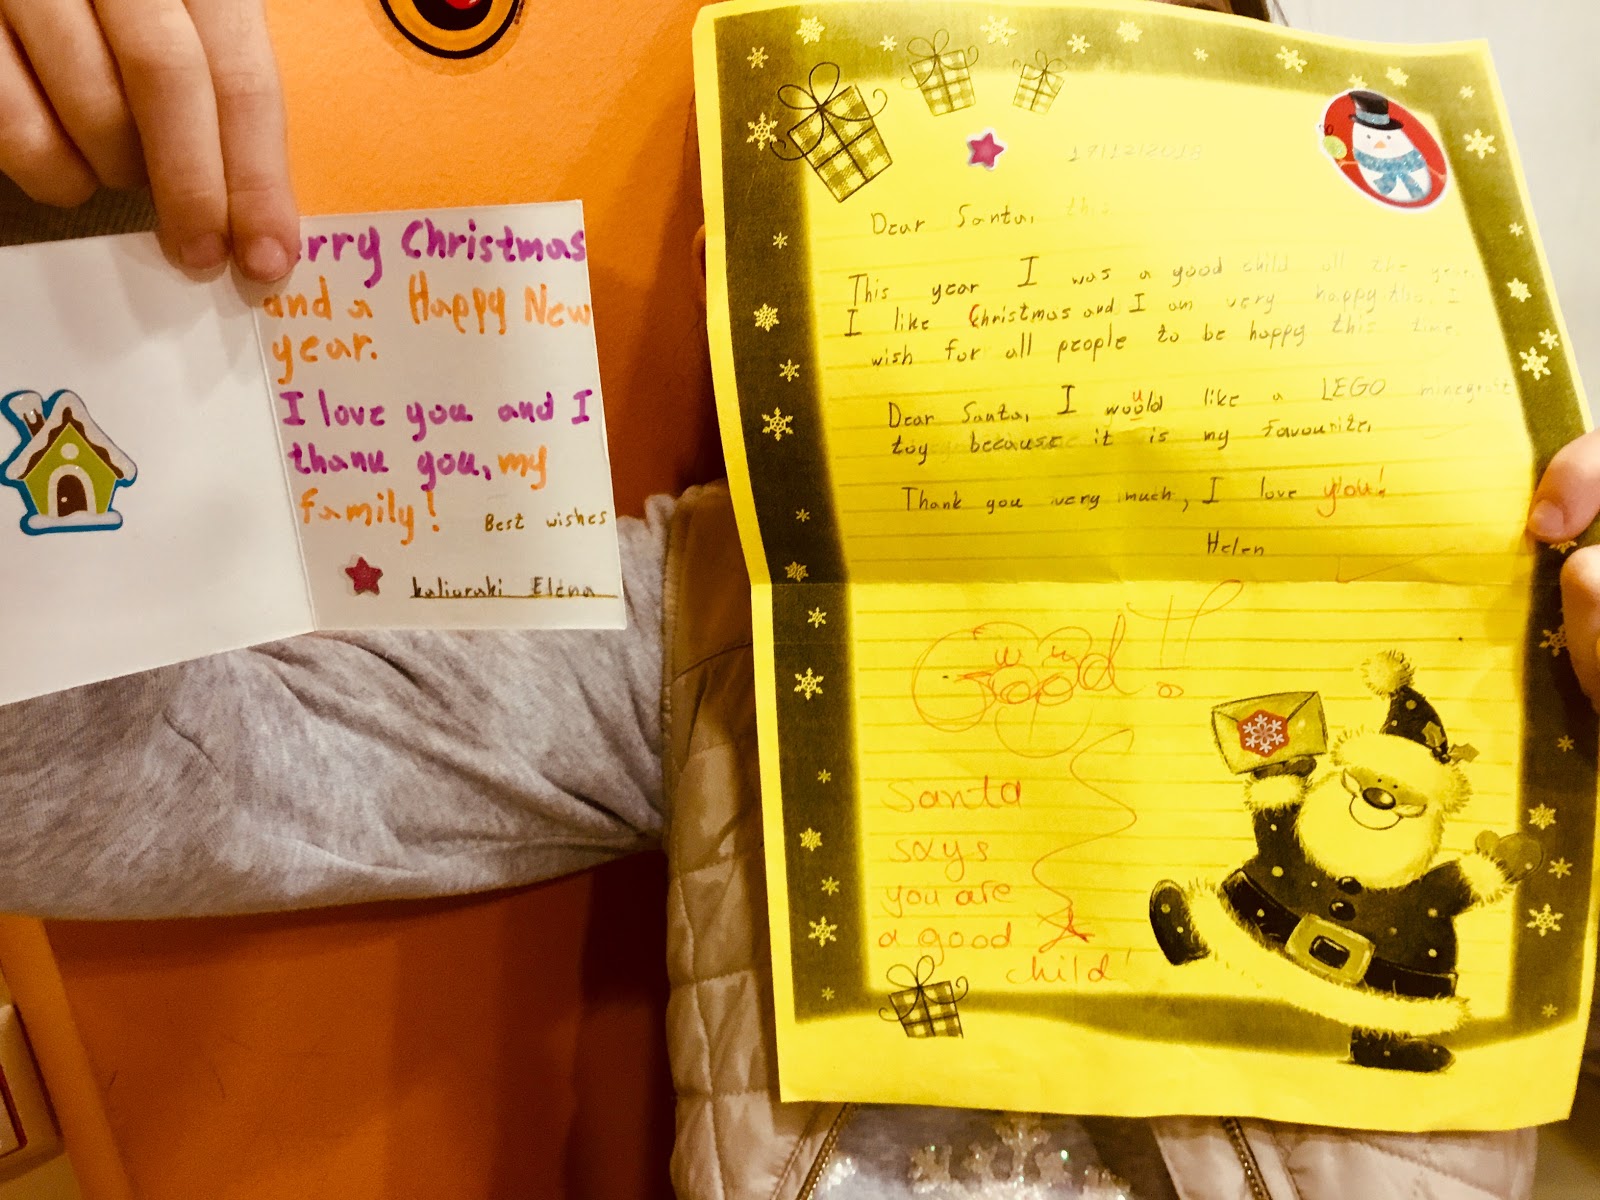 erry Christmas
and a Happy New
year.
I love you and I
thank you, my
family!
Best wishes
kalioraki Elena
19/12/2018
Dear Santa, this
This year I was a good child all the year.
I like Christmas and I am very happy the. I
wish for all people to be happy this time.
Dear Santa, I would like a LEGO minecraft
toy because it is my favourite.
Thank you very much, I love you!
Helen
Good!!
Santa
says
you are
a good
child!